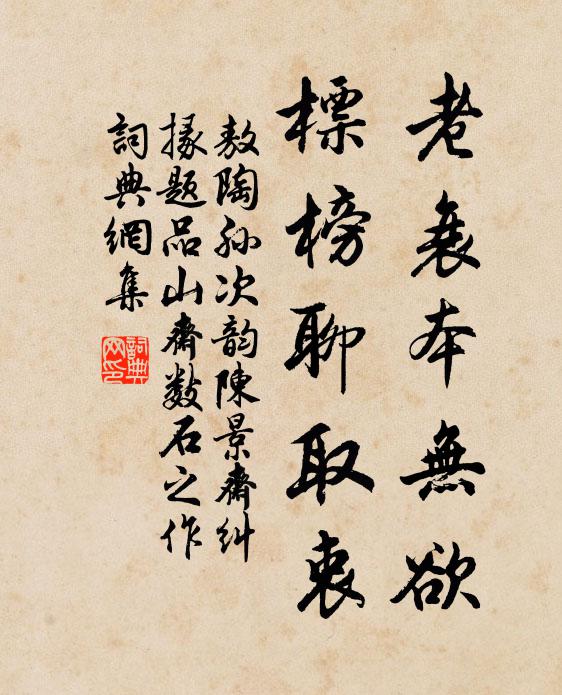 老衰本無欲
標榜聊取衷
敖陶孙次韵陳景齋糾
掾题品山齋数石之作
詞典網集
詞典网印